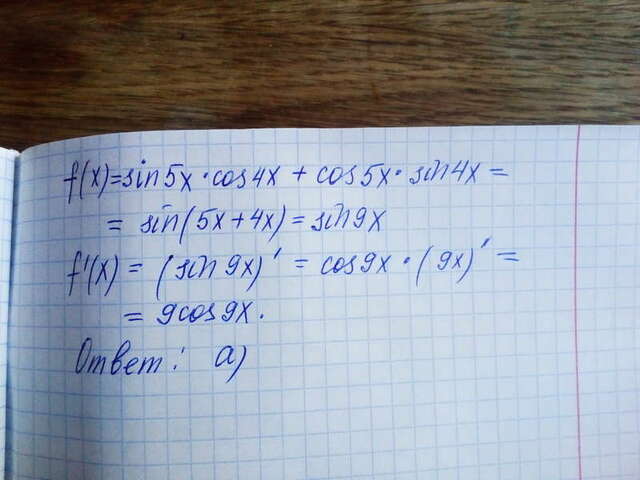 f(x)=sin5x·cos4x + cos5x·sin4x =
= sin(5x+4x)= sin9x
f'(x) = (sin9x)' = cos9x·(9x)' =
= 9cos9x.
Ответ: а)